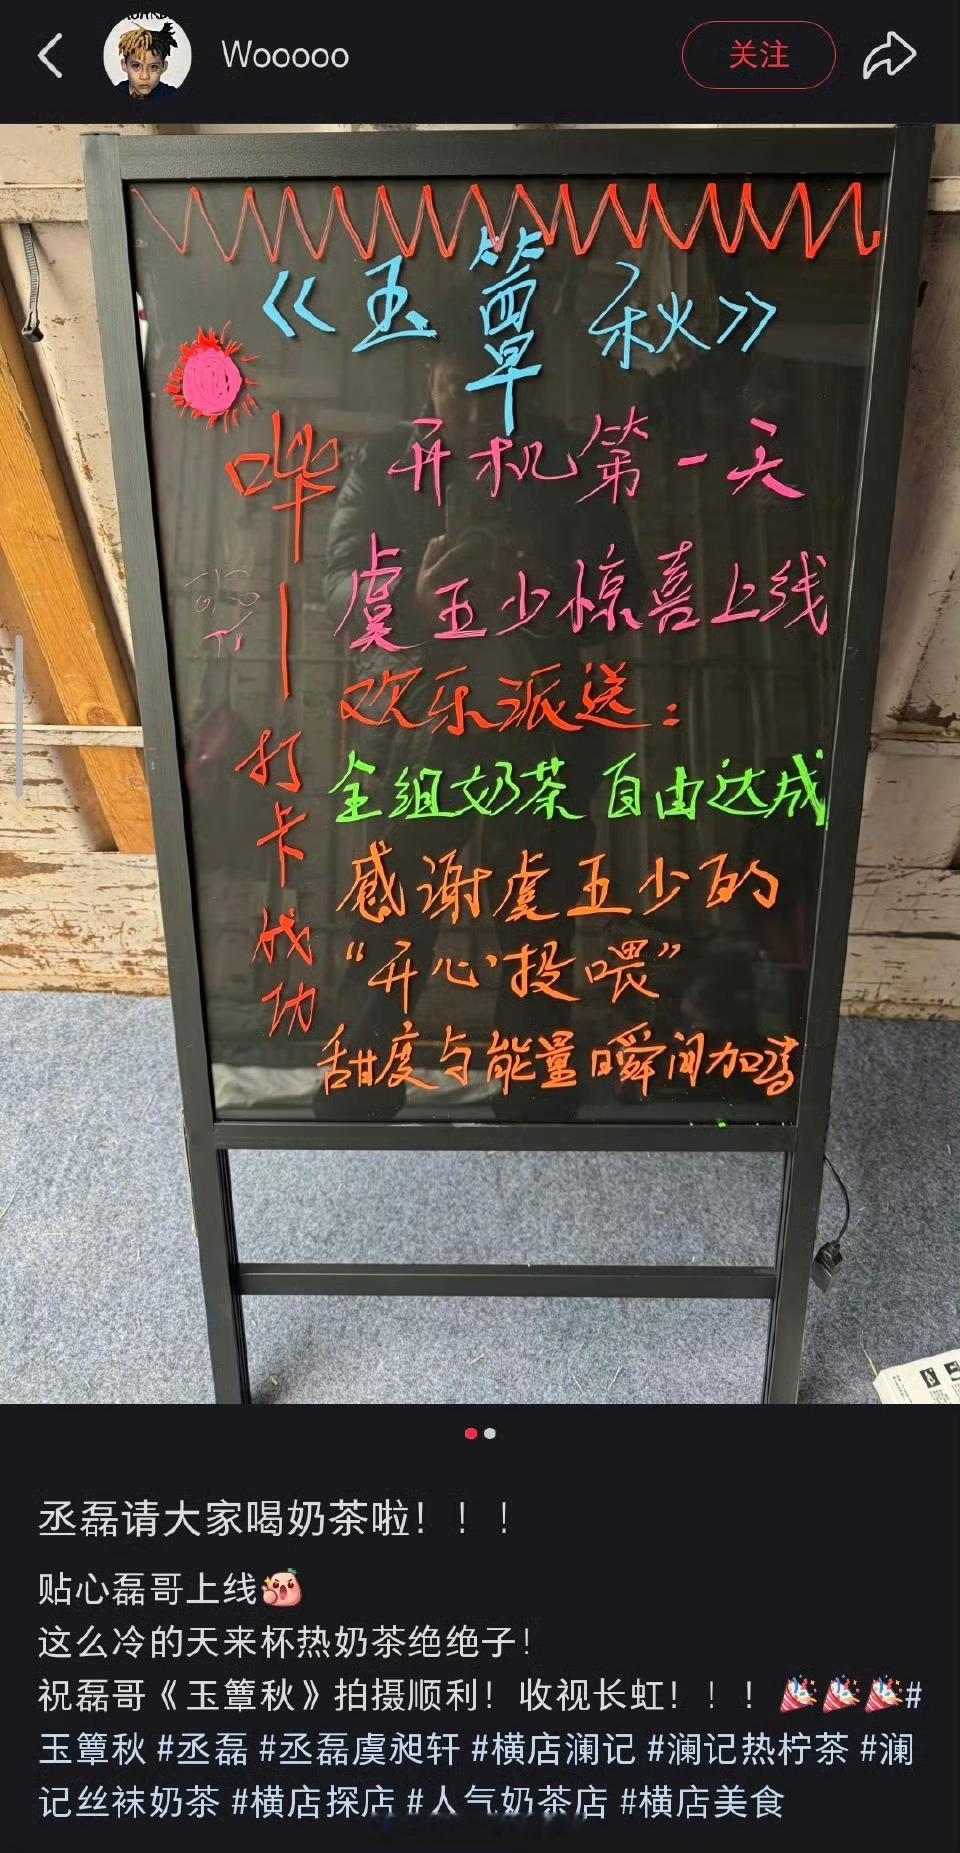 Wooooo
关注
《玉簟秋》
哔
开机第一天
虞五少惊喜上线
欢乐派送：
全组奶茶 自由达成
感谢虞五少的
“开心投喂”
甜度与能量瞬间加满
打卡成功
丞磊请大家喝奶茶啦！！！
贴心磊哥上线
这么冷的天来杯热奶茶绝绝子！
祝磊哥《玉簟秋》拍摄顺利！收视长虹！！！🎉🎉🎉#
玉簟秋 #丞磊 #丞磊虞昶轩 #横店澜记 #澜记热柠茶 #澜
记丝袜奶茶 #横店探店 #人气奶茶店 #横店美食